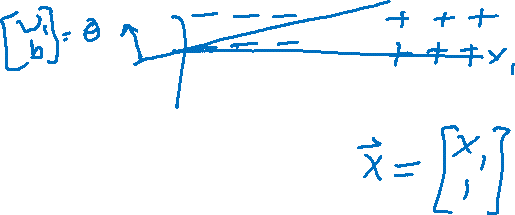 [w₁ b] = θ
− − − − + + +
− − − + + + x₁
x⃗ = [x₁ 1]